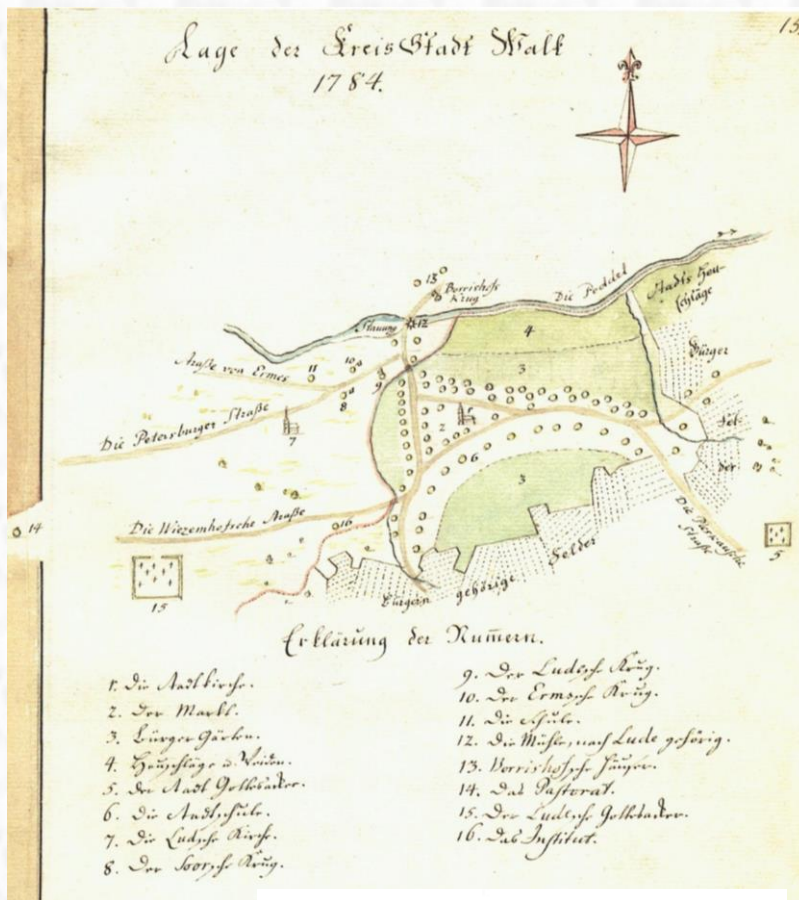 Lage der Kreis Stadt Walk
1784.
13
Borrishofs
Krug
Die Peddel
Stadts Heu-
schläge
Stauung
12
4
Straße von Ermes
11
10
9
8
3
Bürger
Fel-
der
Die Petersburger Straße
7
2
1
6
3
14
Die Wiezemhofsche Straße
16
15
Straße
5
Bürgern gehörige Felder
Erklärung der Nummern.
1. Die Stadtkirche.
2. Der Markt.
3. Bürger Gärten.
4. Heuschläge u. Weiden.
5. Der Stadt Gottesacker.
6. Die Stadtschule.
7. Die Ludesche Kirche.
8. Der Krug.
9. Der Ludesche Krug.
10. Der Ermssche Krug.
11. Die Schule.
12. Die Mühle, nach Lude gehörig.
13. Borrishofsche Häuser.
14. Das Pastorat.
15. Der Ludesche Gottesacker.
16. Das Institut.